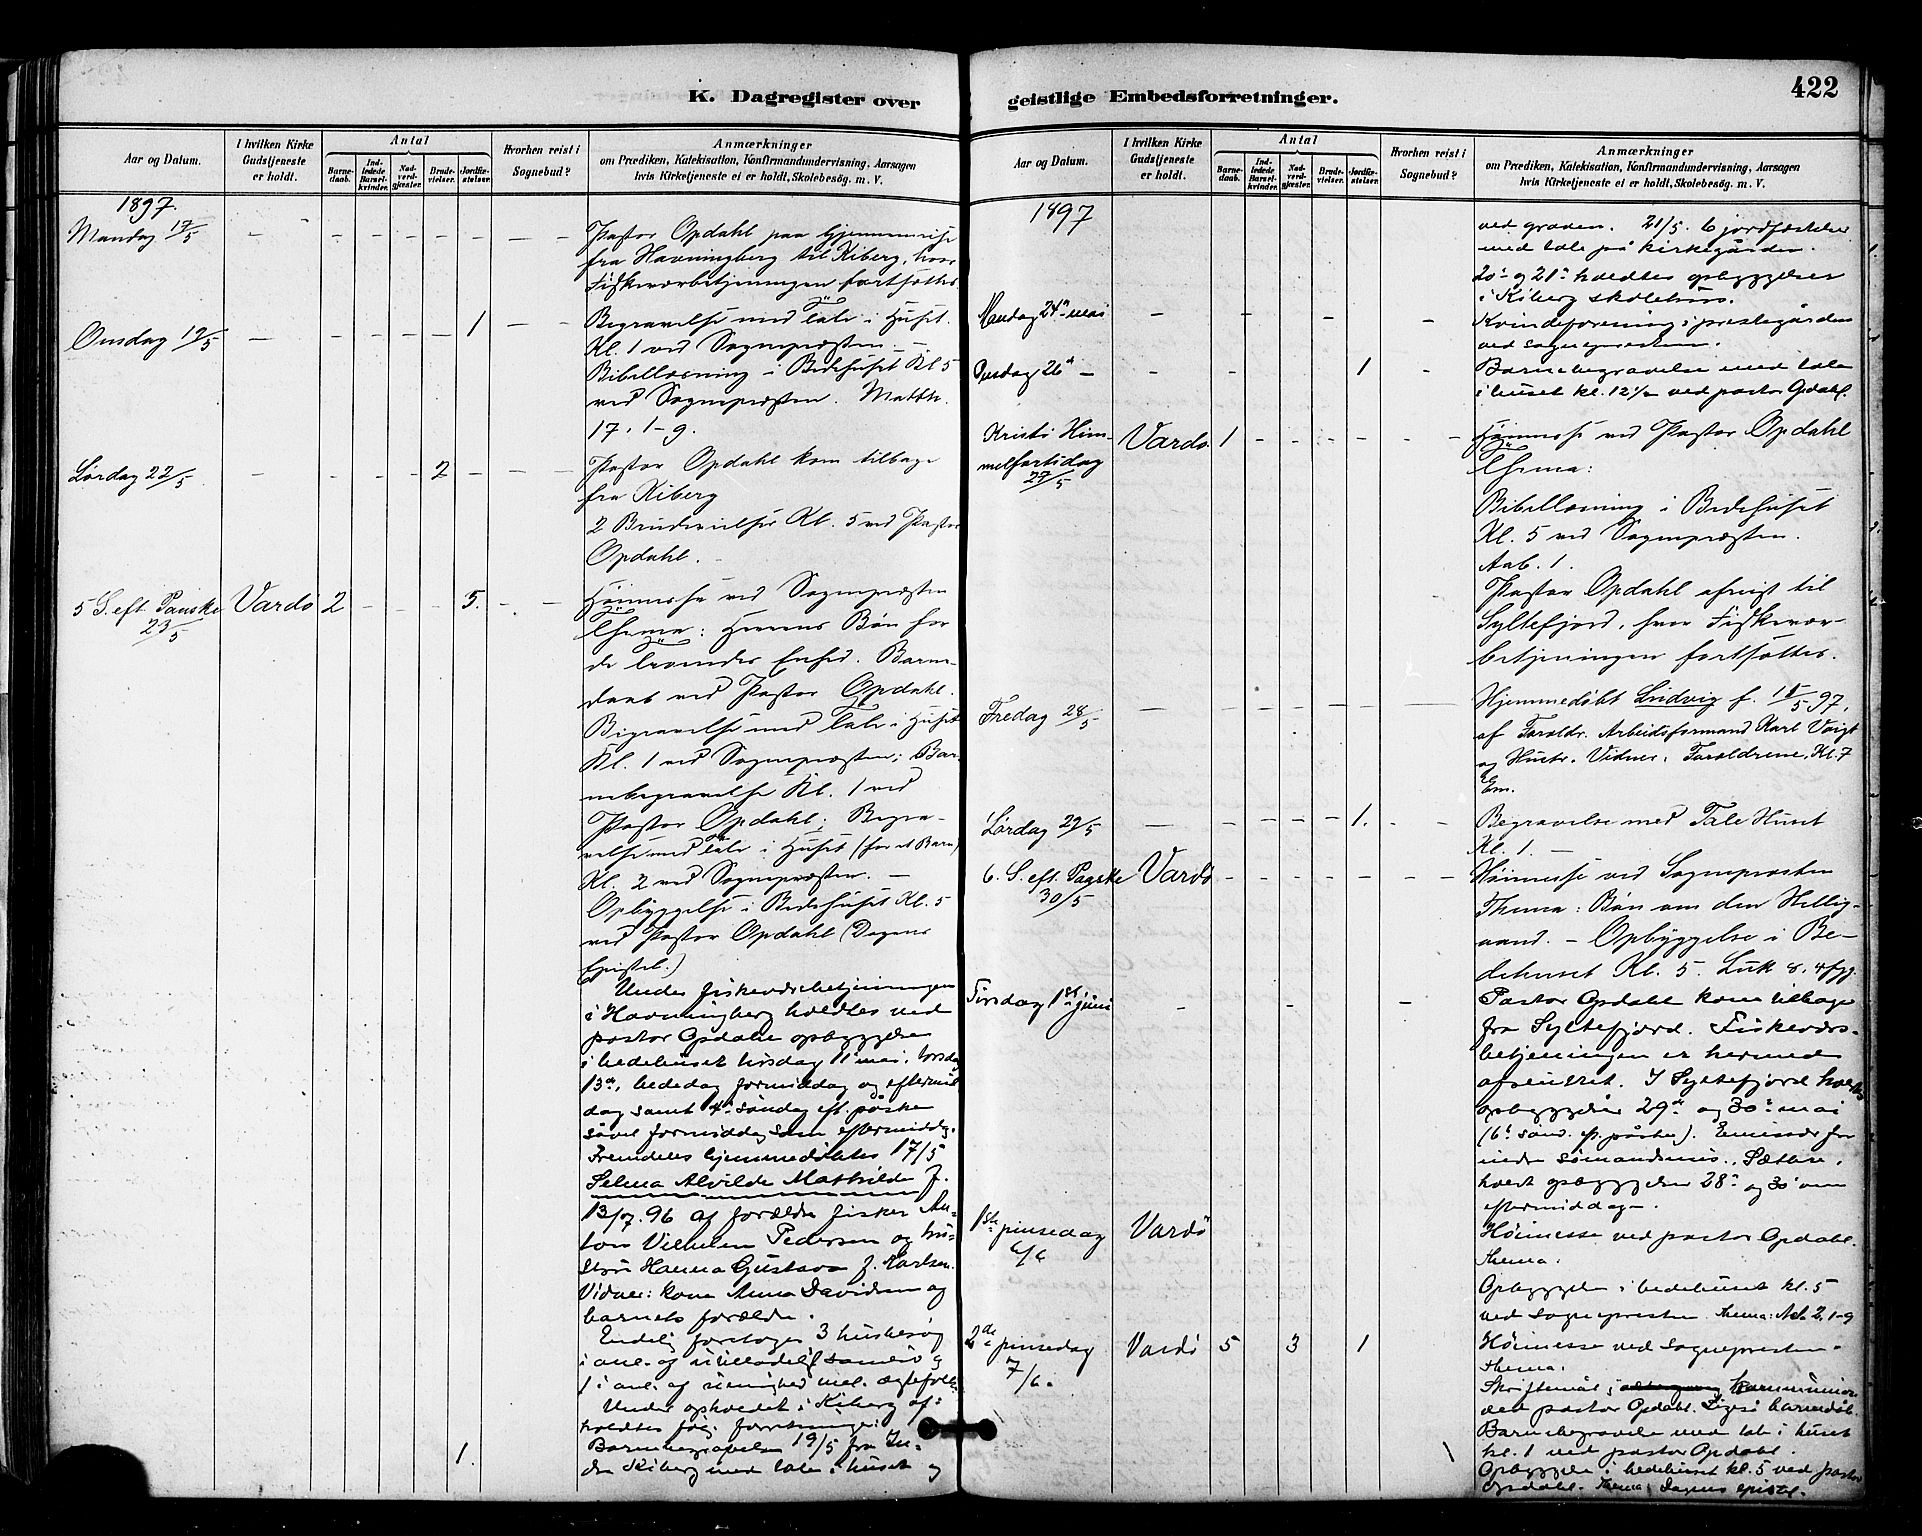 K. Dagregister over
Aar og Datum.
I hvilken Kirke Gudstjeneste er holdt.
Antal
Barne-daab.
Ind-ledede Barsel-kvinder.
Nad-verd-gjester.
Brude-vielser.
Jordfæ-stelser.
Hvorhen reist i Sognebud?
Anmærkninger
om Prædiken, Katekisation, Konfirmandundervisning, Aarsagen
hvis Kirketjeneste ei er holdt, Skolebesøg. m. V.
1897.
Mandag 17/5 - - - - - - - -
Pastor Opdahl paa Gjennemreise
fra Havningberg til Kiberg, hvor
Fiskeværbetjeningen fortsættes.
Onsdag 19/5 - - - - - 1 - -
Begravelse med Tale i Huset.
Kl. 1 ved Sognepræsten. -
Bibellæsning i Bedehuset Kl 5
ved Sognepræsten. Matth.
17, 1-9.
Lørdag 22/5 - - - - 2 - - -
Pastor Opdahl kom tilbage
fra Kiberg
2 Brudevielser Kl. 5 ved Pastor
Opdahl. -
5 S. eft. Paaske 23/5 Vardø 2 - - - 5. - -
Høimesse ved Sognepræsten
Thema: Herrens Bøn for
de troendes Enhed. Barne-
daab ved Pastor Opdahl.
Begravelse med Tale i Huset
Kl. 1 ved Sognepræsten; Bar-
nebegravelse Kl. 1 ved
Pastor Opdahl; Begra-
velse med Tale i Huset (for et Barn)
Kl. 2 ved Sognepræsten. -
Opbyggelse i Bedehuset Kl. 5
ved Pastor Opdahl (Dagens
Epistel.)
Under fiskeværsbetjeningen
i Havningberg holdtes ved
pastor Opdahl opbyggelser
i bedehuset tirsdag 11te mai, torsdag
13de, bededag formiddag og eftermid
dag samt 4de søndag eft. påske
såvel formiddag som eftermiddg.
Fremdeles hjemmedøbtes 17/5
Selma Alvilde Mathilde f.
13/7. 96 af forældre fisker An-
ton Vilhelm Pedersen og hu-
stru Hanna Gustava f. Karlsen.
Vidner: kone Anna Davidsen og
barnets forældre.
Endelig foretoges 3 husbesøg
i anl. af utilladeligt samliv og
1 i anl. af uenighed mel. ægtefolk.
Under opholdet i Kiberg af-
holdtes følg. forretninger:
1.
Barnebegravelse 19/5 fra In-
dre Kiberg med tale i huset og
geistlige Embedsforretninger.
422
Aar og Datum.
I hvilken Kirke Gudstjeneste er holdt.
Antal
Barne-daab.
Ind-ledede Barsel-kvinder.
Nad-verd-gjester.
Brude-vielser.
Jordfæ-stelser.
Hvorhen reist i Sognebud?
Anmærkninger
om Prædiken, Katekisation, Konfirmandundervisning, Aarsagen
hvis Kirketjeneste ei er holdt, Skolebesøg. m. V.
1897
ved graven. 21/5. 6 jordfæstelser
med tale på kirkegården.
20de og 21de holdtes opbyggelser
i Kiberg skolehus.
Mandag 24de mai - - - - -
Kvindeforening i prestegården
ved sognepresten.
Onsdag 26de - - - - 1 -
Barnebegravelse med tale
i huset kl. 12 1/2 ved pastor Opdahl.
Kristi Him-
melfartsdag
27/5 Vardø. 1 - - - - - -
Høimesse ved Pastor Opdahl
Thema:
Bibellæsning i Bedehuset
Kl. 5 ved Sognepræsten.
Aab. 1.
Pastor Opdahl afreist til
Syltefjord, hvor Fiskevær-
betjeningen fortsættes.
Fredag 28/5 - - - - - - -
Hjemmedøbt Ludvig f. 18/5 97,
af Foreldr. Arbeidsformand Karl Voigt
og Hustr. Vidner: Foreldrene, Kl. 7
Em.
Lørdag 29/5 - - - - - 1. - -
Begravelse med Tale Huset
Kl. 1. -
6. S. eft. Paaske 30/5 Vardø - - - - - - -
Høimesse ved Sognepræsten
Thema: Bøn om den Hellig-
aand. - Opbyggelse i Be-
dehuset Kl. 5. Luk 8. 4 fgg.
Tirsdag 1ste juni - - -
Pastor Opdahl kom tilbage
fra Syltefjord. Fiskeværs-
betjeningen er hermed
afsluttet. I Syltefjord holdtes
opbyggelser 29de og 30te mai
(6te sønd. ef. påske). Emissær for
indre sømandsmis., Sæther,
holdt opbyggelser 28de og 30te om
eftermiddag-.
1ste pinsedag 6/6 Vardø
Høimesse ved pastor Opdahl.
Thema.
Opbyggelse i bedehuset kl. 5
ved sognepresten. Thema: Act. 2, 1-9
2den pinsedag 7/6. Vardø 5 3 1
Høimesse ved sognepresten.
Thema.
Skriftemål
ved pastor Opdahl. Ligeså barnedåb.
Barnebegravelse med tale i huset
kl. 1 ved pastor Opdahl.
Opbyggelse i bedehuset kl. 5 ved pastor
Opdahl. Thema: Dagens epistel.